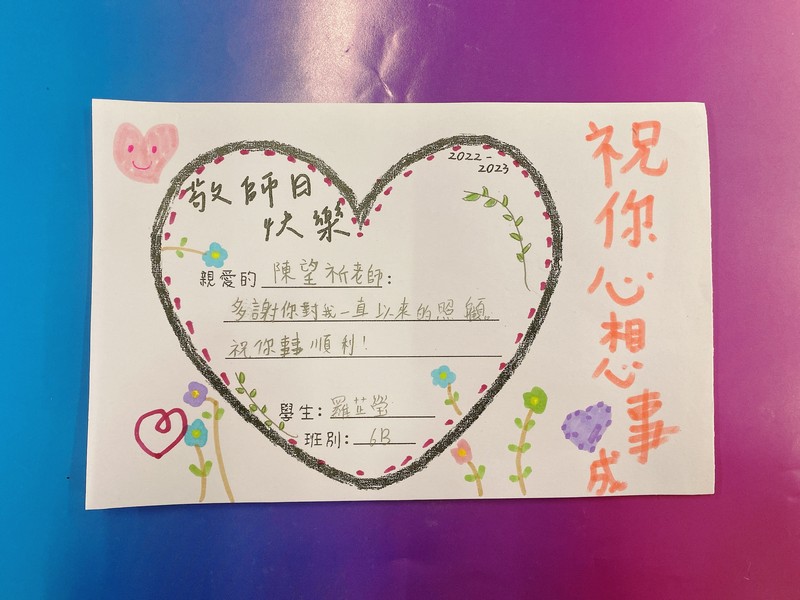 敬師日
快樂
2022-
2023
親愛的 陳望祈老師：
多謝你對我一直以來的照顧。
祝你事事順利！
學生：羅芷瑩
班別：6B
祝你心想事成